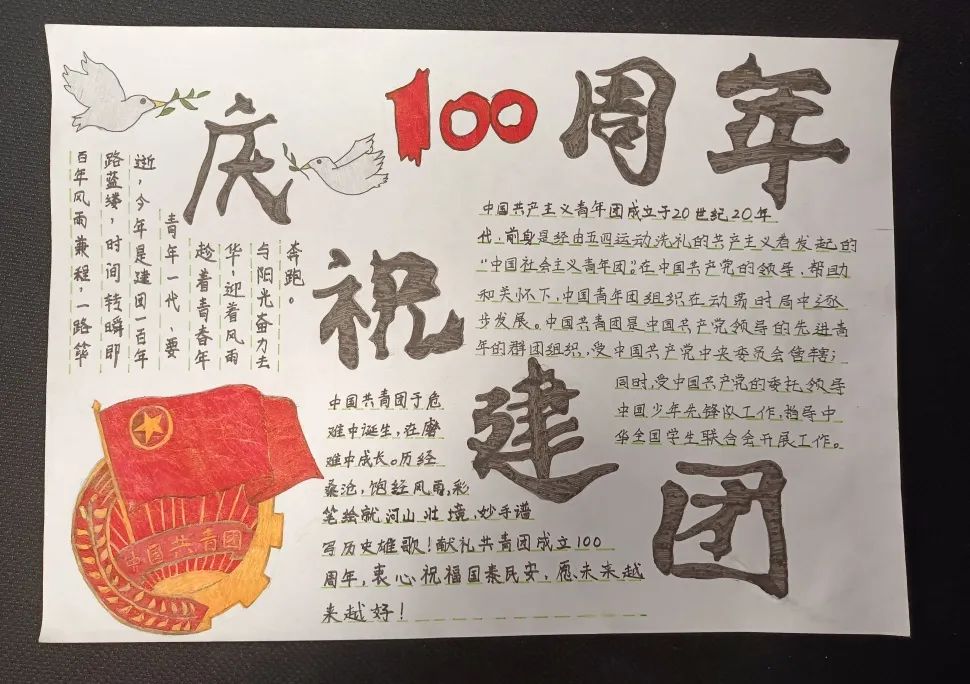 庆祝建团
100周年
百年风雨兼程,一路筚
路蓝缕,时间转瞬即
逝,今年是建团一百年
青年一代、要
趁着青春年
华,迎着风雨
与阳光奋力去
奔跑。
中国共产主义青年团成立于20世纪20年
代,前身是经由五四运动洗礼的共产主义者发起的
“中国社会主义青年团”。在中国共产党的领导、帮助
和关怀下,中国青年团组织在动荡时局中逐
步发展。中国共青团是中国共产党领导的先进青
年的群团组织,受中国共产党中央委员会管辖;
同时,受中国共产党的委托,领导
中国少年先锋队工作,指导中
华全国学生联合会开展工作。
中国共青团于危
难中诞生,在磨
难中成长。历经
桑沧,饱经风雨,彩
笔绘就河山壮境,妙手谱
写历史雄歌!献礼共青团成立100
周年,衷心祝福国泰民安,愿未来越
来越好!
中国共青团